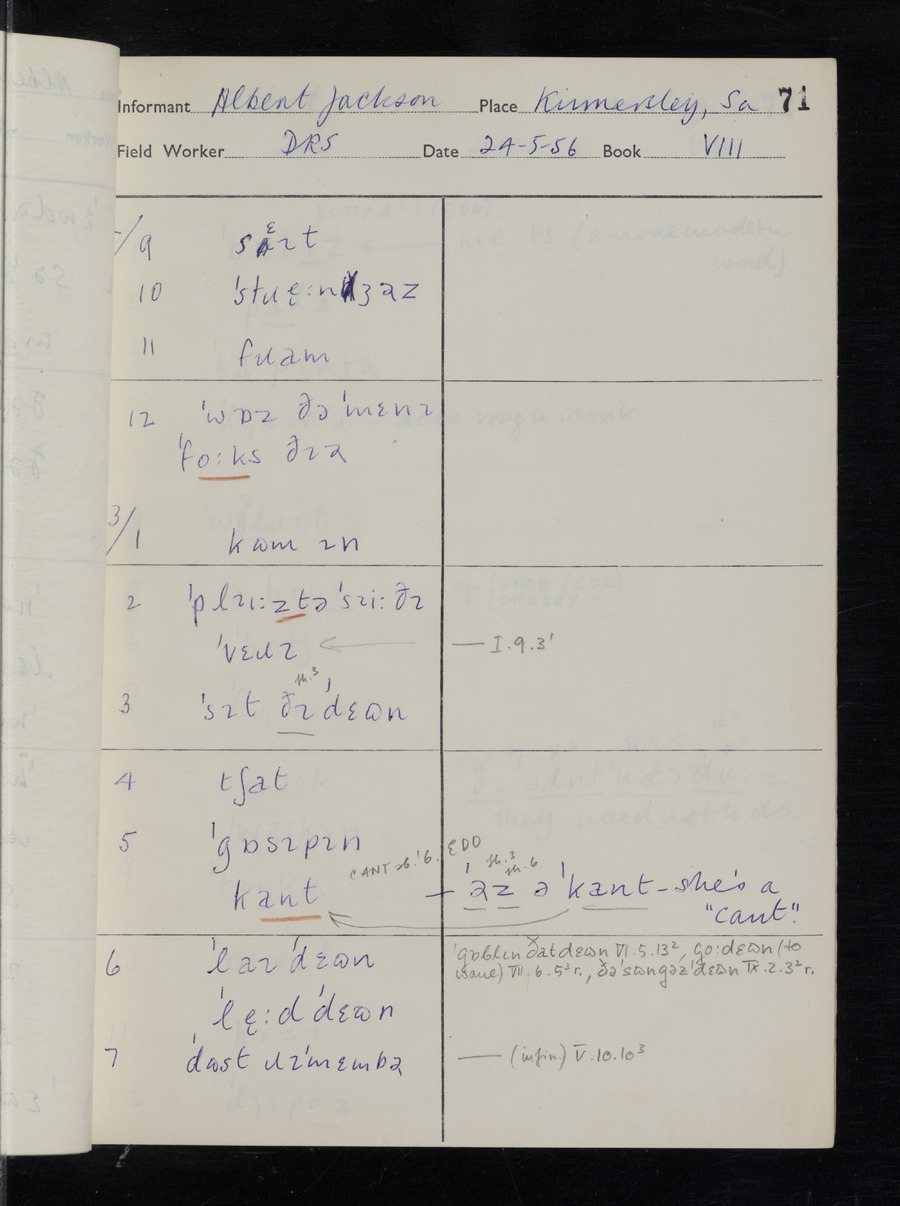 Informant Albert Jackson Place Kinnersley, Sa 71
Field Worker DRS Date 24-5-56 Book VIII
9
10
11 fɹam
12 ˈwɒz ðə ˈmenɪ
ˈfo:ks ðɪə
3/1 kɷm ɪn
2 ˈplɪi:z tə ˈsɪi: ðɪ
ˈvɛɹɪ — I.9.3'
3 ˈsɪt ðɪ ˈdɛɷn
4 tʃat
5 ˈgɒsɪpɪn
CANT sb.¹ 6. EDD
kant — əz ə ˈkant – she's a
"cant".
6 ˈlaɪ ˈdɛɷn
ˈlę:d ˈdɛɷn
ˈgɒblin ðat dɛɷn VI.5.13², go: dɛɷn (to
wane) VII.6.5² r., ðə ˈsɷngəz ˈdɛɷn IX.2.3² r.
7 ˈdɷst ɹɪˈmɛmbə — (infin.) V.10.10³